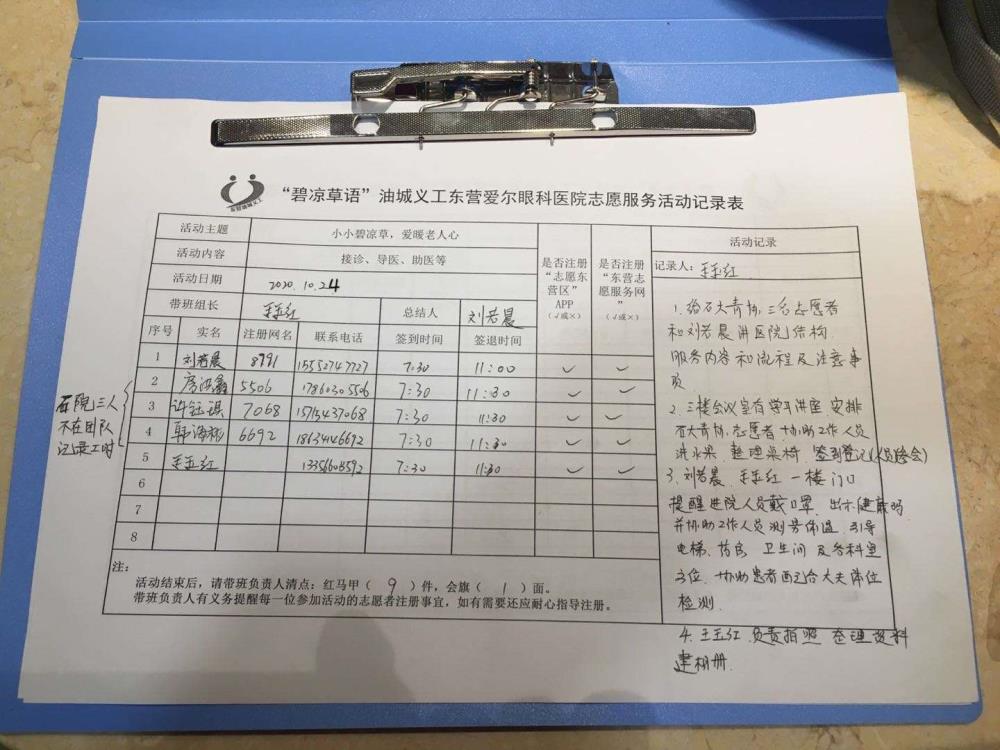 “碧凉草语”油城义工东营爱尔眼科医院志愿服务活动记录表
东营油城义工
活动主题 小小碧凉草，爱暖老人心
活动内容 接诊、导医、助医等
活动日期 2020.10.24
带班组长 王玉红 总结人 刘若晨
是否注册“志愿东营区”APP（√或×）
是否注册“东营志愿服务网”（√或×）
序号 实名 注册网名 联系电话 签到时间 签退时间
1 刘若晨 8791 15552747727 7:30 11:00 ✓ ✓
2 5506 17860305506 7:30 11:30 ✓ ✓
3 许钰琪 7068 15715437068 7:30 11:30 ✓ ✓
4 韩海彬 6692 18634146692 7:30 11:30 ✓ ✓
5 王玉红 13356608592 7:30 11:30 ✓ ✓
6
7
8
石院三人
不在团队
记录工时
注：
活动结束后，请带班负责人清点：红马甲（ 9 ）件，会旗（ 1 ）面。
带班负责人有义务提醒每一位参加活动的志愿者注册事宜，如有需要还应耐心指导注册。
活动记录
记录人：王玉红
1. 给石大青协三名志愿者
和刘若晨讲医院结构
服务内容和流程及注意事
项
2. 三楼会议室有学习讲座 安排
石大青协志愿者协助工作人员
洗水果 整理桌椅 签到登记
3. 刘若晨 王玉红 一楼门口
提醒进院人员戴口罩 出示健康码
并协助工作人员测量体温 引导
电梯、药房 卫生间及各科室
方位 协助患者配合大夫体位
检测
4. 王玉红 负责拍照 整理资料
建相册.